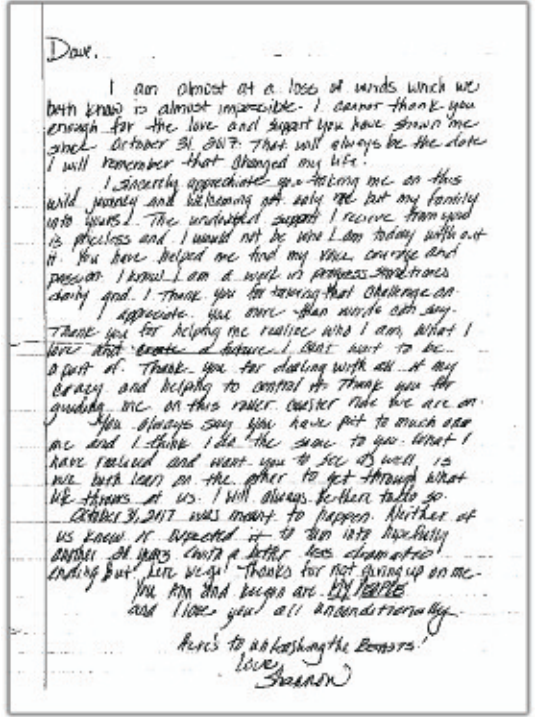 Dave,
I am almost at a loss of words which we
both know is almost impossible. I cannot thank you
enough for the love and support you have shown me
since October 31, 2017. That will always be the date
I will remember that changed my life!
I sincerely appreciate you taking me on this
wild journey and welcoming not only me but my family
into yours! The undoubted support I recieve from you
is priceless and I would not be who I am today without
it. You have helped me find my voice, courage and
passion. I know I am a work in progress sometimes
daily and I Thank you for taking that challenge on.
I appreciate you more than words can say.
Thank you for helping me realize who I am, what I
love and create a future I cant wait to be
a part of. Thank you for dealing with all of my
crazy and helping to control it. Thank you for
guiding me on this roller coaster ride we are on.
You always say you have put to much onto
me and I think I do the same to you. What I
have realized and want you to see as well is
we both lean on the other to get through what
life throws at us. I will always be there to do so.
October 31, 2017 was meant to happen. Neither of
us knew or expected it to turn into hopefully
another 20 years (with a better less dramatic)
ending but here we go! Thanks for not giving up on me.
You Ann and are MY PEOPLE
and I love you all unconditionally.
Here's to unleashing the BEASTS!
Love,
Shannon